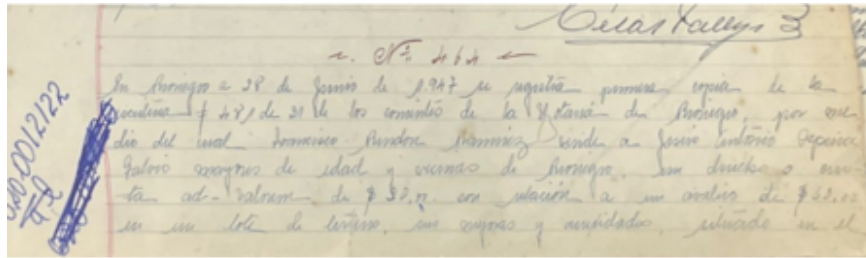 Nº 464
En Rionegro a 28 de Junio de 1.947 se registra primera copia de la
escritura # 481 de 21 de los corrientes de la Notaría de Rionegro, por me
dio del cual Francisco Rendon Ramirez vende a Jesús Antonio
Galvis mayores de edad y vecinos de Rionegro, un derecho o cuo
ta ad-valorem de $ 38,oo con relación a un avalúo de $
en un lote de terreno, sus mejoras y anexidades, situado en el
020-0012122